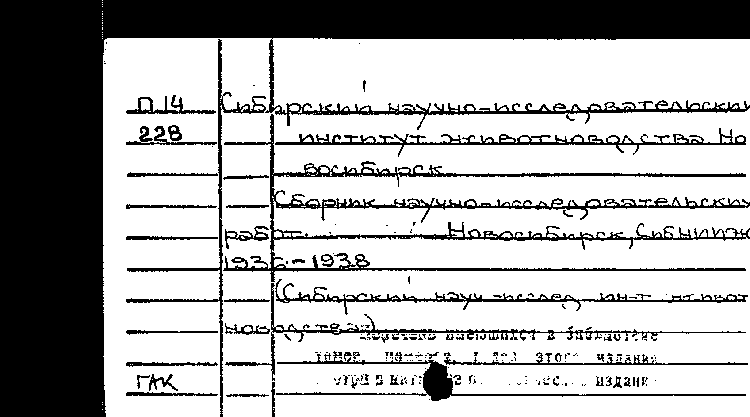 П 14 Сибирский научно-исследовательский
228 институт животноводства. Но
восибирск
Сборник научно-исследовательских
работ. Новосибирск, Сибниж
1936-1938
(Сибирский науч-исслед. ин-т живот
новодства)
Перечень имеющихся в библиотеке
томов, этого издания
ГАК издан